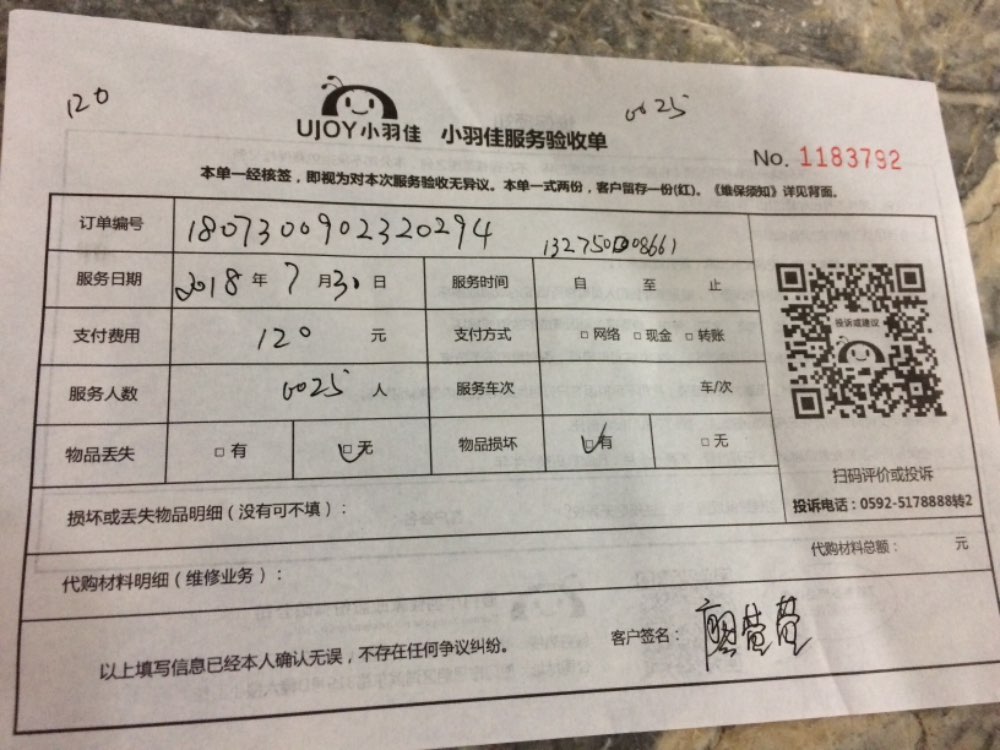 120
0025
UJOY小羽佳 小羽佳服务验收单
No. 1183792
本单一经核签，即视为对本次服务验收无异议。本单一式两份，客户留存一份(红)。《维保须知》详见背面。
订单编号 1807300902320294
服务日期 2018 年 7 月 30 日 服务时间 自 至 止
支付费用 120 元 支付方式 □ 网络 □ 现金 □ 转账
投诉或建议
服务人数 0025 人 服务车次 车/次
物品丢失 □ 有 □ 无 物品损坏 □ 有 □ 无
扫码评价或投诉
投诉电话：0592-5178888转2
损坏或丢失物品明细（没有可不填）：
代购材料总额： 元
代购材料明细（维修业务）：
客户签名：
以上填写信息已经本人确认无误，不存在任何争议纠纷。